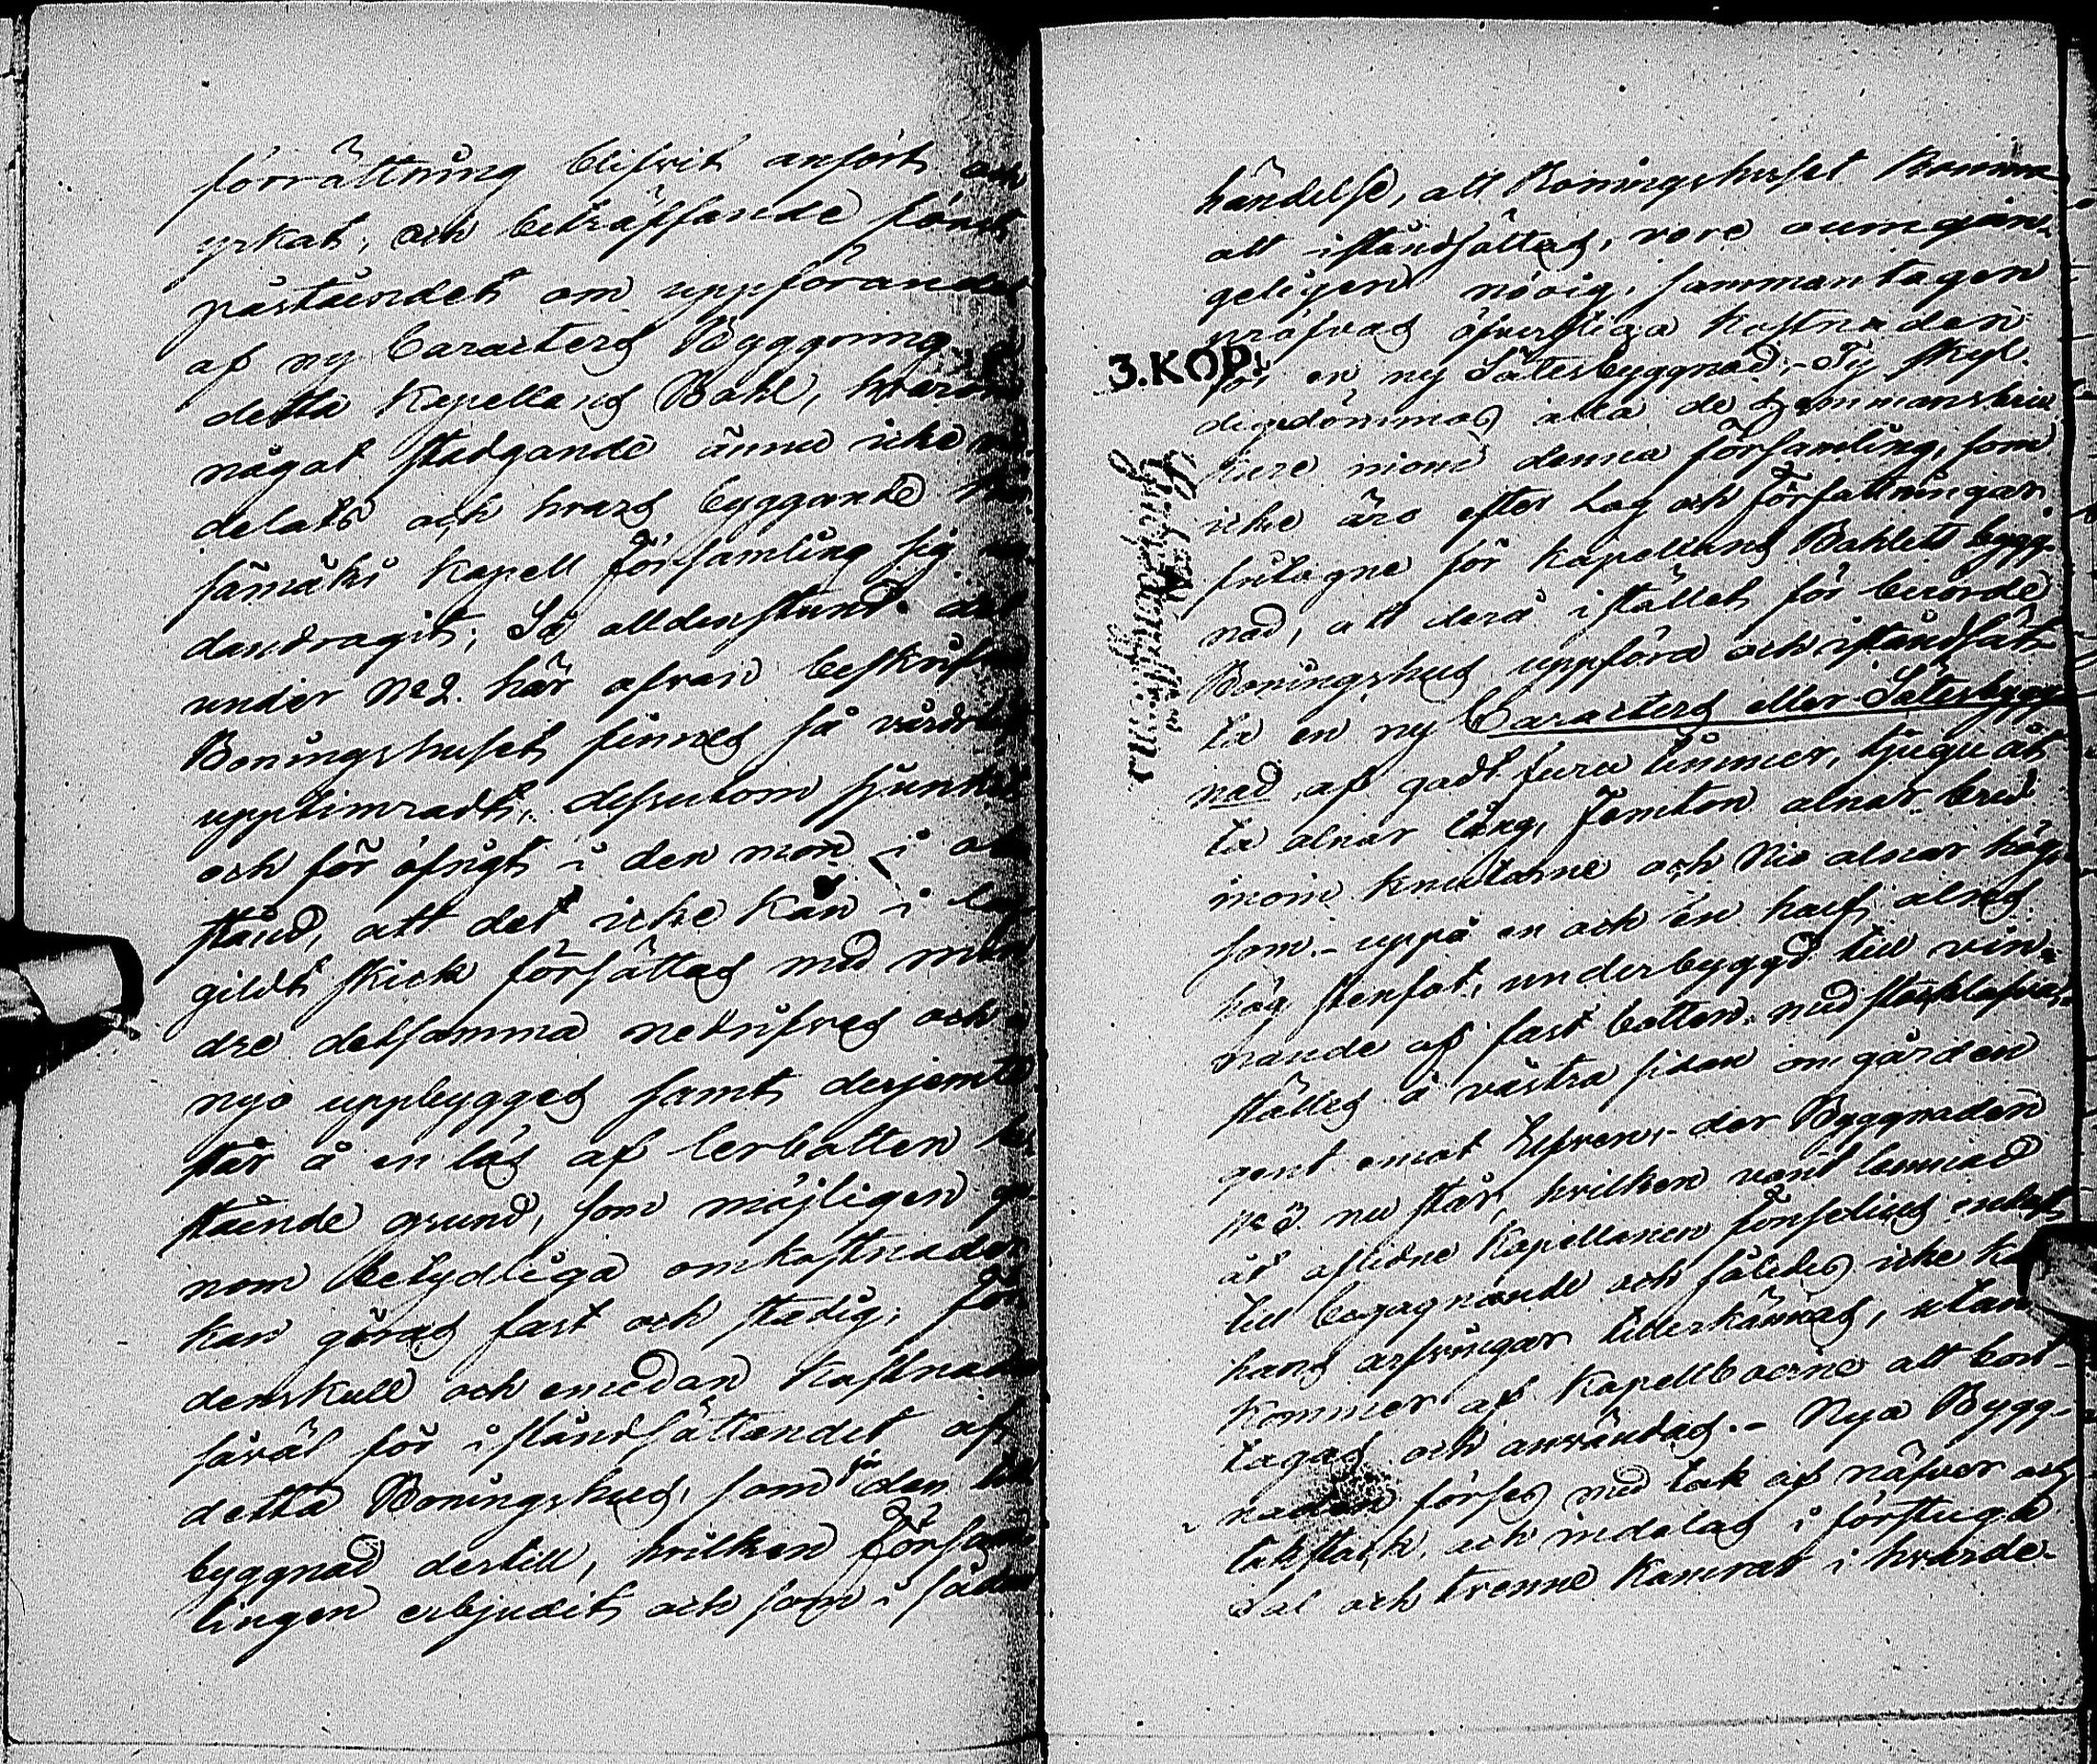 förrättning blifvit anfört och
yrkat, och beträffande först
påståendet om uppförande
af ny Caracters Byggning å
detta Kapellans Bohl, hvarom
något stadgande ännu icke
delats och hvars byggande
Kapell Församling sig
dandragit; Så alldenstund det
under No 2. här ofvan beskrifne
Boningshuset finnes så vårdslöst
upptimradt, dessutom sjunket
och för öfrigt i den mon i
stånd, att det icke kan i
gildt skick försättas med
dre detsamma nedrifves och å
nyo uppbygges samt derjemte
står å en lös af lerbotten be-
stående grund, som möjligen ge-
nom betydliga omkostnader
kan göras fast och stadig; för
denskull och emedan kostnaden
såväl för iståndsättandet af
detta Boningshus, som för den
byggnad dertill, hvilken Försam-
lingen erbjudit och som i sådan
händelse, att Boningshuset komme
att iståndsättas, vore oumgän-
geligen nödig, sammantagen
pröfvas öfverstiga kostnaden
3.KOP.
för en ny Sätesbyggnad; Ty skyl-
digdömmas alla de hemmansbru-
kare inom denna församling, som
icke äro efter Lag och Författningar
fritagne för Kapellans Bohlets bygg-
nad, att dera i stället för berörde
Boningshus uppföra och iståndsät-
ta en ny Caracters eller Sätesbygg-
nad af godt furu timmer, tjuguåt-
ta alnar lång, femton alnar bred
inom knutarne och Nio alnar hög,
som uppå en och en half alns
hög stenfot, underbyggd till vin-
nande af fast botten med
ställes å västra sidan om gården
gent emot der Byggnaden
No 3 nu står, hvilken varit lemnad
åt aflidne Kapellanen Fonselius endast
till begagnande och således icke kan
hans arfvingar tillerkännas, utan
kommer af Kapellboerne att bort-
tagas och användas. - Nya Bygg-
naden förses med tak af näfver och
takstack, och indelas i förstuga
Sal och trenne Kamrar i hvarde-